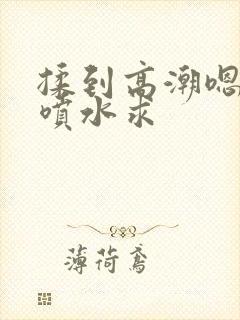 揉到高潮嗯
喷水求
薄荷鸢